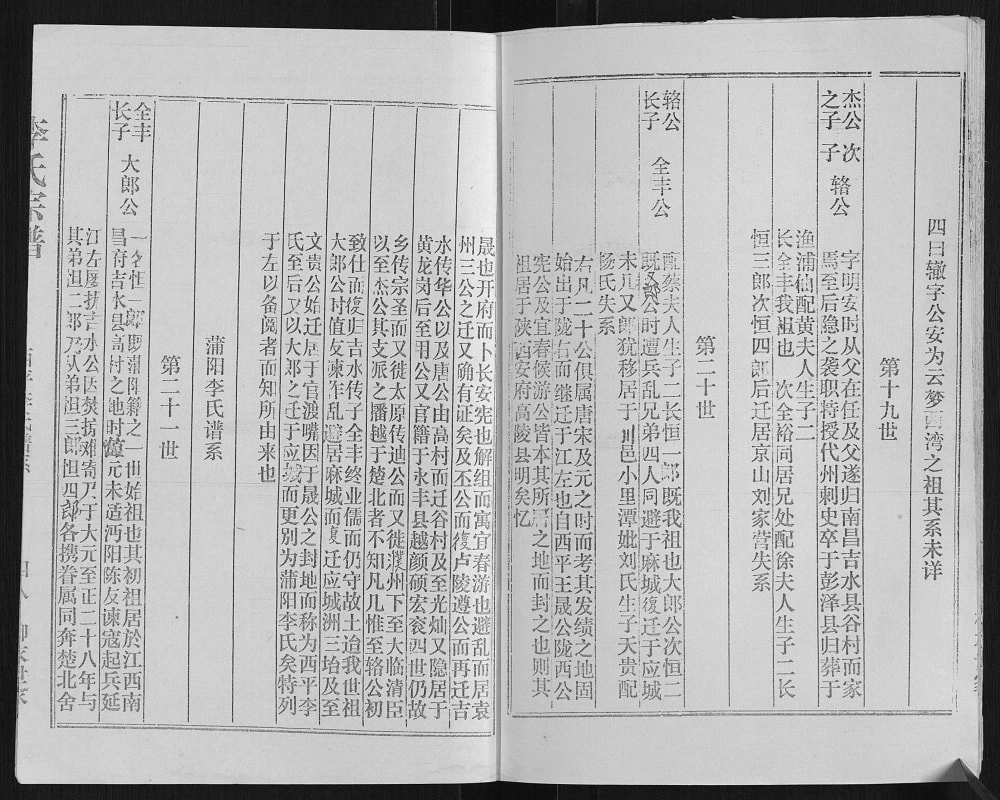 四曰辙字公安为云梦西湾之祖其系未详
第十九世
杰公 次
之子 子
辂公
字明安时从父在任及父遂归南昌吉水县谷村而家
焉至后隐之袭职特授代州刺史卒于彭泽县归葬于
渔浦仙配黄夫人生子二
长全丰我祖也 次全裕同居兄处配徐夫人生子二长
恒三郎次恒四郎后迁居京山刘家营失系
第二十世
辂公
长子
全丰公
配蔡夫人生子二长恒一郎既我祖也大郎公次恒二
既郎公时遭兵乱兄弟四人同避于麻城復迁于应城
未几又郎犹移居于川邑小里潭妣刘氏生子天贵配
杨氏失系
右凡二十公俱属唐宋及元之时而考其发绩之地固
始出于陇右而继迁于江左也自西平王晟公陇西公
宪公及宜春候游公皆本其所居之地而封之也则其
祖居于陕西安府高陵县明矣忆
晟也开府而卜长安宪也解组而寓宜春游也避乱而居袁
州三公之迁又确有证矣及丕公而復卢陵遵公而再迁吉
水传华公以及唐公由高村而迁谷村及至光灿又隐居于
黄龙岗后至用公又官籍于永丰县越颜硕宏衮四世仍故
乡传宗圣而又徙太原传迪公而又徙濮州下至大临清臣
以至杰公其支派之播越于楚北者不知凡几惟至辂公初
致仕而復归吉水传子全丰终业儒而仍守故土迨我世祖
大郎公时值友谏作乱避居麻城而復迁应城洲三坮及至
文贵公始迁居于官渡嘴因于晟公之封地而称为西平李
氏至后又以大郎之迁于应城而更别为蒲阳李氏矣特列
于左以备阅者而知所由来也
蒲阳李氏谱系
第二十一世
全丰
长子
大郎公
一名恒一郎既蒲阳籍之一世始祖也其初祖居於江西南
昌府吉水县高村之地时元末适沔阳陈友谏寇起兵延
江左屡扰吉水公因焚拐难寄乃于大元至正二十八年与
其弟恒二郎乃从弟恒三郎恒四郎各携眷属同奔楚北舍
李氏宗谱